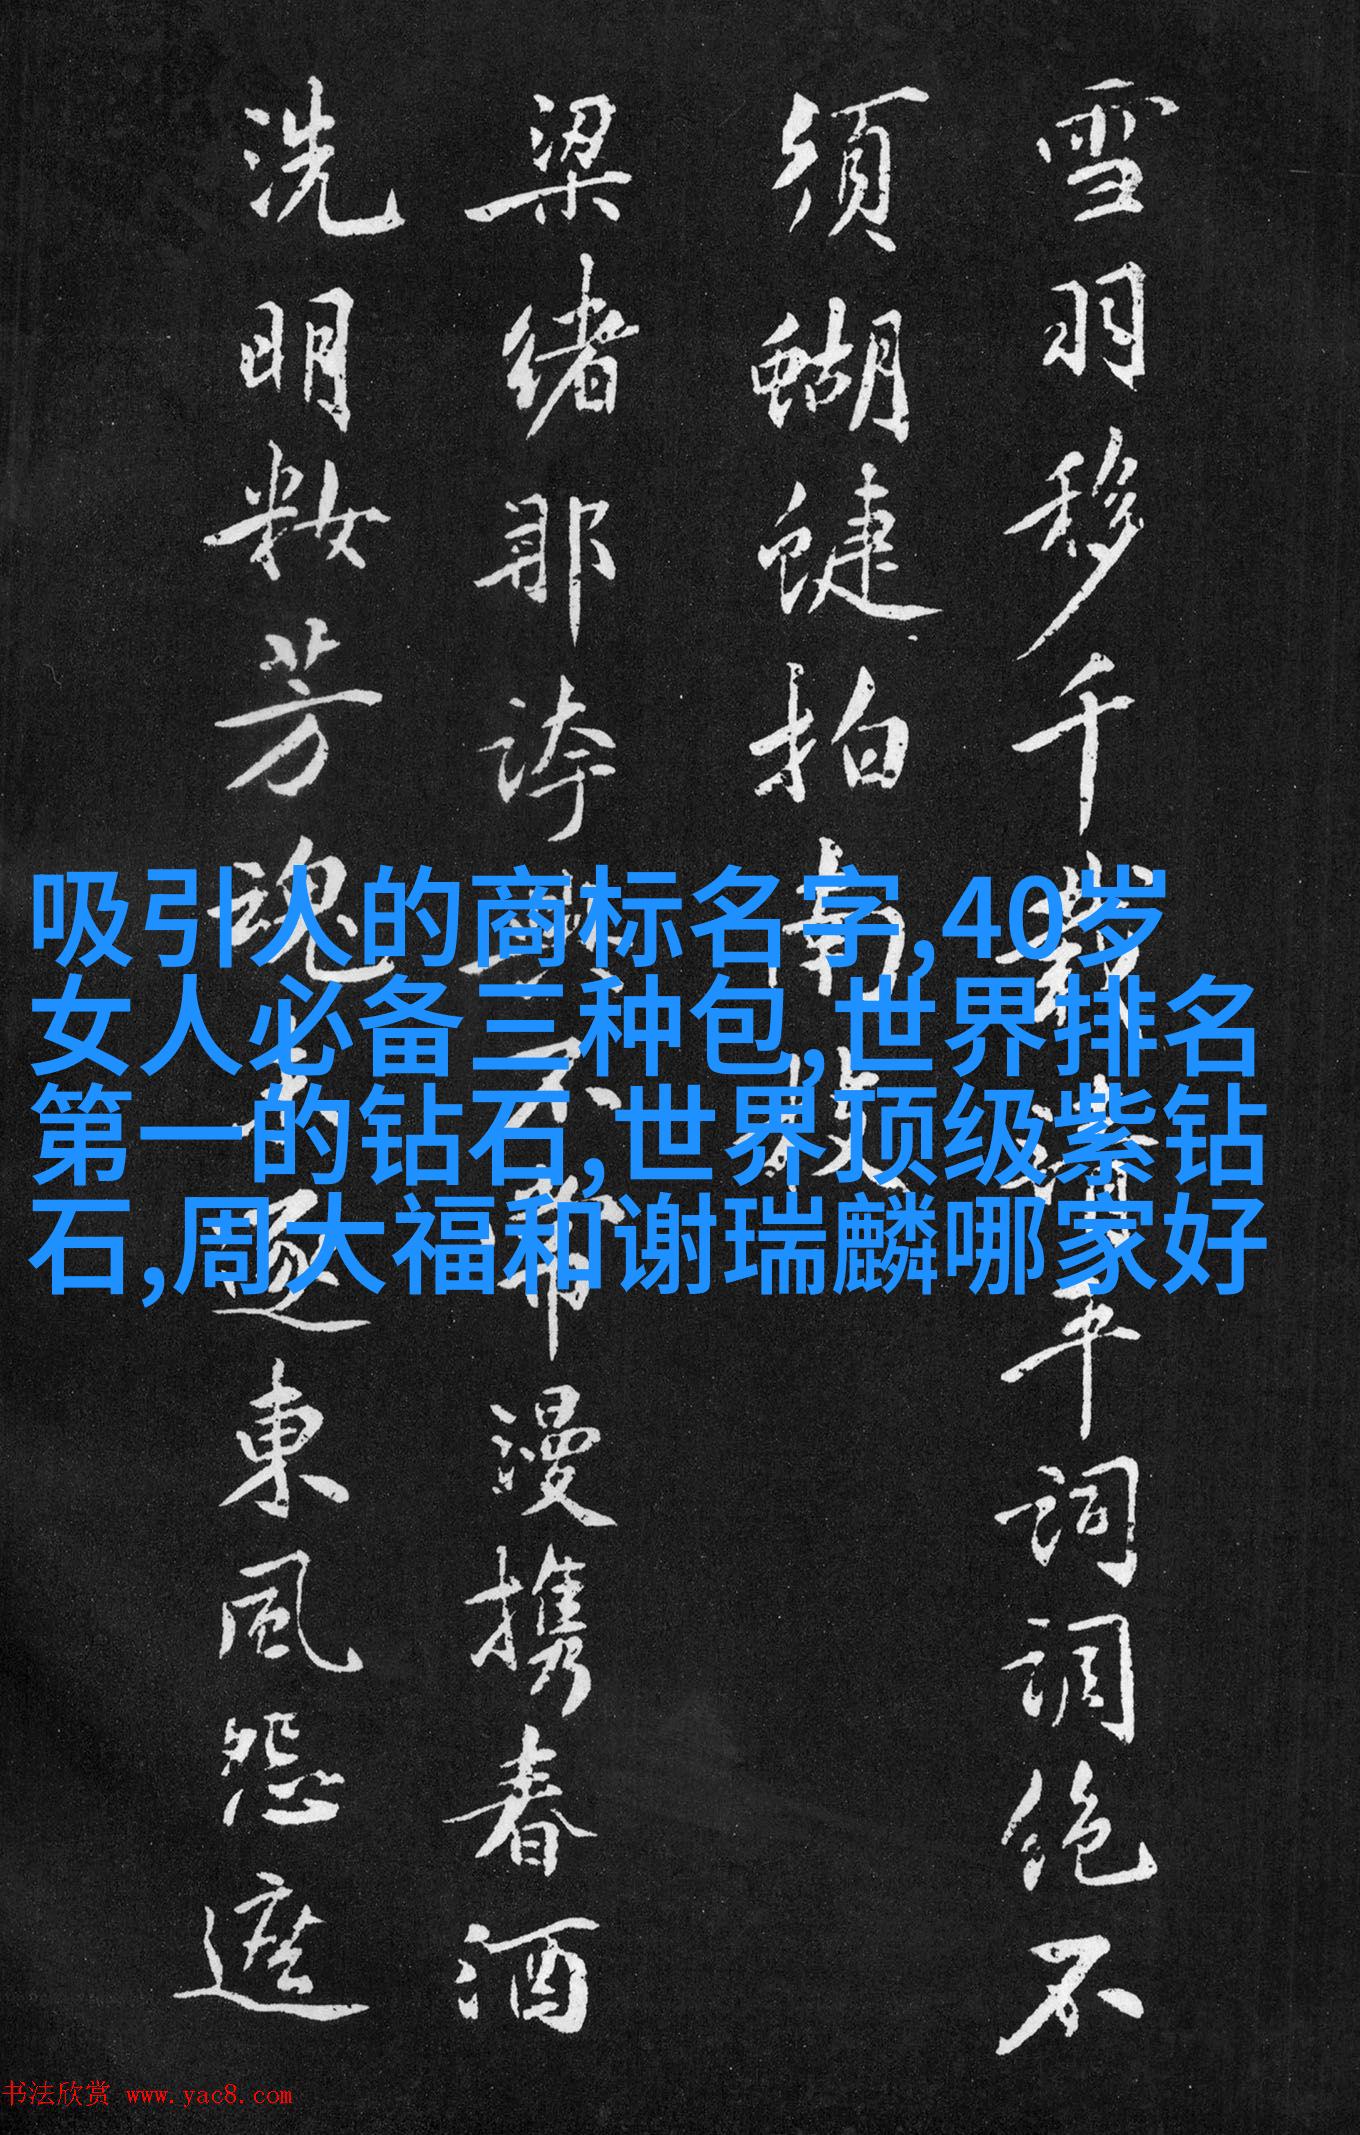 雪羽移千 清平词调绝不
须蝴蜨拍南枝
梁绪那誇 不帶漫携春酒
洗明妝芳魂 逐東風怨遮
吸引人的商标名字,40岁
女人必备三种包,世界排名
第一的钻石,世界顶级紫钻
石,周大福和谢瑞麟哪家好
书法欣赏 www.yac8.com